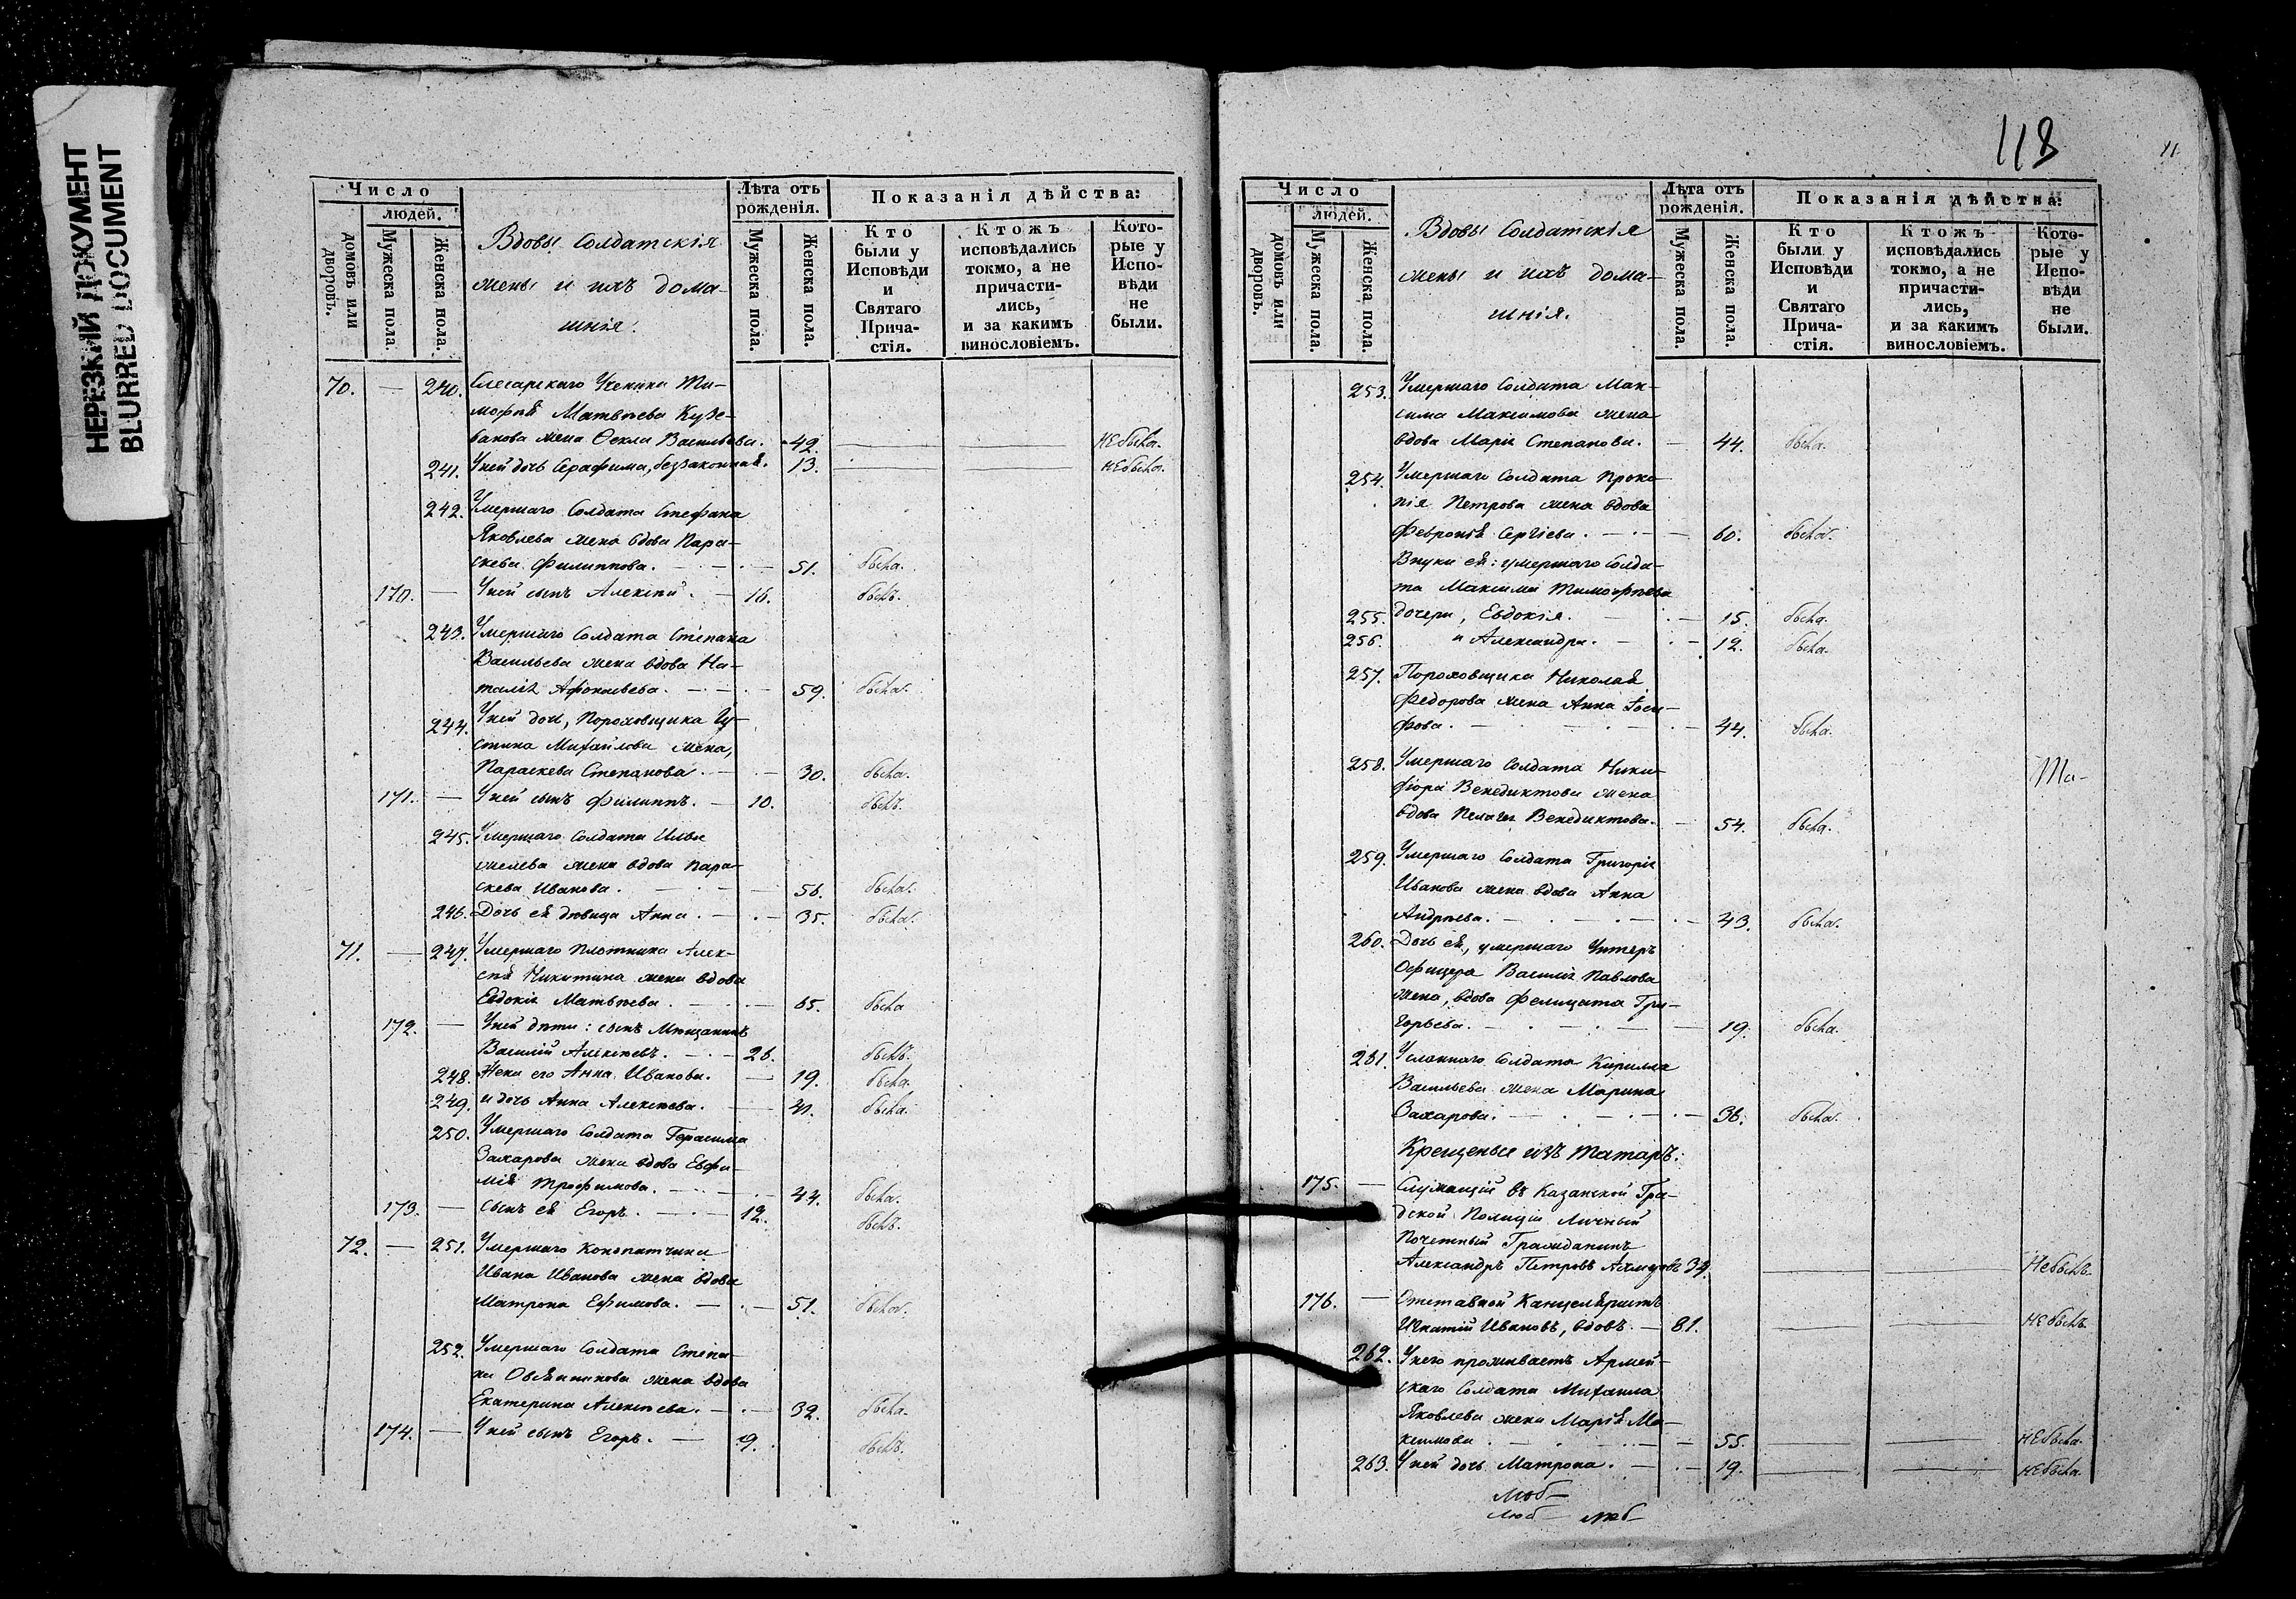 НЕРЕЗКИЙ ДОКУМЕНТ
BLURRED DOCUMENT
Число
людей.
домовъ или дворовъ.
Мужеска пола.
Женска пола.
Вдовы Солдатскія
жены и ихъ дома-
шнія.
Лѣта отъ рожденія.
Мужеска пола.
Женска пола.
Показанія дѣйства:
Кто были у Исповѣди и Святаго Прича-стія.
Ктожъ исповѣдались токмо, а не причасти-лись, и за какимъ винословіемъ.
Кото-рые у Испо-вѣди не были.
70. — 240. Слесарскаго Ученика Ти-
мофея Матвѣева Кузе-
банова жена Ѳекла Васильева. 49. не была.
241. У ней дочь Серафима, беззаконная. 13. не была.
242. Умершаго Солдата Стефана
Яковлева жена вдова Пара-
скева Филиппова. 51. была.
170. — У ней сынъ Алексѣй. 16. былъ.
243. Умершаго Солдата Степана
Васильева жена вдова На-
талія Афонасьева. 59. была.
244. У ней дочь, Пороховщика Іу-
стина Михайлова жена,
Параскева Степанова. 30. была.
171. — У ней сынъ Филиппъ. 10. былъ.
245. Умершаго Солдата Ильи
жена вдова Пара-
скева Иванова. 56. была.
246. Дочь ея дѣвица Анна. 35. была.
71. — 247. Умершаго Плотника Алек-
сѣя Никитина жена вдова
Евдокія Матвѣева. 65. была
172. — У ней дѣти: сынъ Мѣщанинъ
Василій Алексѣевъ. 26. былъ.
248. Жена его Анна Иванова. 19. была.
249. и дочь Анна Алексѣева. была.
250. Умершаго Солдата Герасима
Захарова жена вдова Евфи-
мія Трофимова. 44. была.
173. — Сынъ ея Егоръ. 12. былъ.
72. — 251. Умершаго Конопатчика
Ивана Иванова жена вдова
Матрона Ефимова. 51. была.
252. Умершаго Солдата Степа-
на Овсянникова жена вдова
Екатерина Алексѣева. 32. была.
174. — У ней сынъ Егоръ. 9. былъ.
118
11
Число
людей.
домовъ или дворовъ.
Мужеска пола.
Женска пола.
Вдовы Солдатскія
жены и ихъ дома-
шнія.
Лѣта отъ рожденія.
Мужеска пола.
Женска пола.
Показанія дѣйства:
Кто были у Исповѣди и Святаго Прича-стія.
Ктожъ исповѣдались токмо, а не причасти-лись, и за какимъ винословіемъ.
Кото-рые у Испо-вѣди не были.
253. Умершаго Солдата Мак-
сима Максимова жена
вдова Марія Степанова. 44. была.
254. Умершаго Солдата Проко-
пія Петрова жена вдова
Февронія Сергіева. 60. была.
Внуки ея: умершаго Солда-
та Максима Тимофѣева
255. дочери, Евдокія. 15. была.
256. и Александра. 12. была.
257. Пороховщика Николая
Федорова жена Анна Іоси-
фова. 44. была.
258. Умершаго Солдата Ники-
фора Венедиктова жена
вдова Пелагія Венедиктова. 54. была.
Та-
259. Умершаго Солдата Григорія
Иванова жена вдова Анна
Андрѣева. 43. была.
260. Дочь ея, умершаго Унтеръ
Офицера Василія Павлова
жена, вдова Фелицата Гри-
горьева. 19. была.
261. Усланнаго Солдата Кирилла
Васильева жена Марина
Захарова. 36. была.
Крещеные изъ Татаръ:
175. — Служащій въ Казанской Гра-
дской Полиціи Личный
Почетный Гражданинъ
Александръ Петровъ Ахмеровъ 34. Не былъ.
176. — Отставной Канцеляристъ
Игнатій Ивановъ, вдовъ. 81. не былъ.
262. У него проживаетъ Армей-
скаго Солдата Михаила
Яковлева жена Марія Ма-
ксимова. 55. не была.
263. У ней дочь Матрона. 19. не была.
Люб-
Люб- люб-